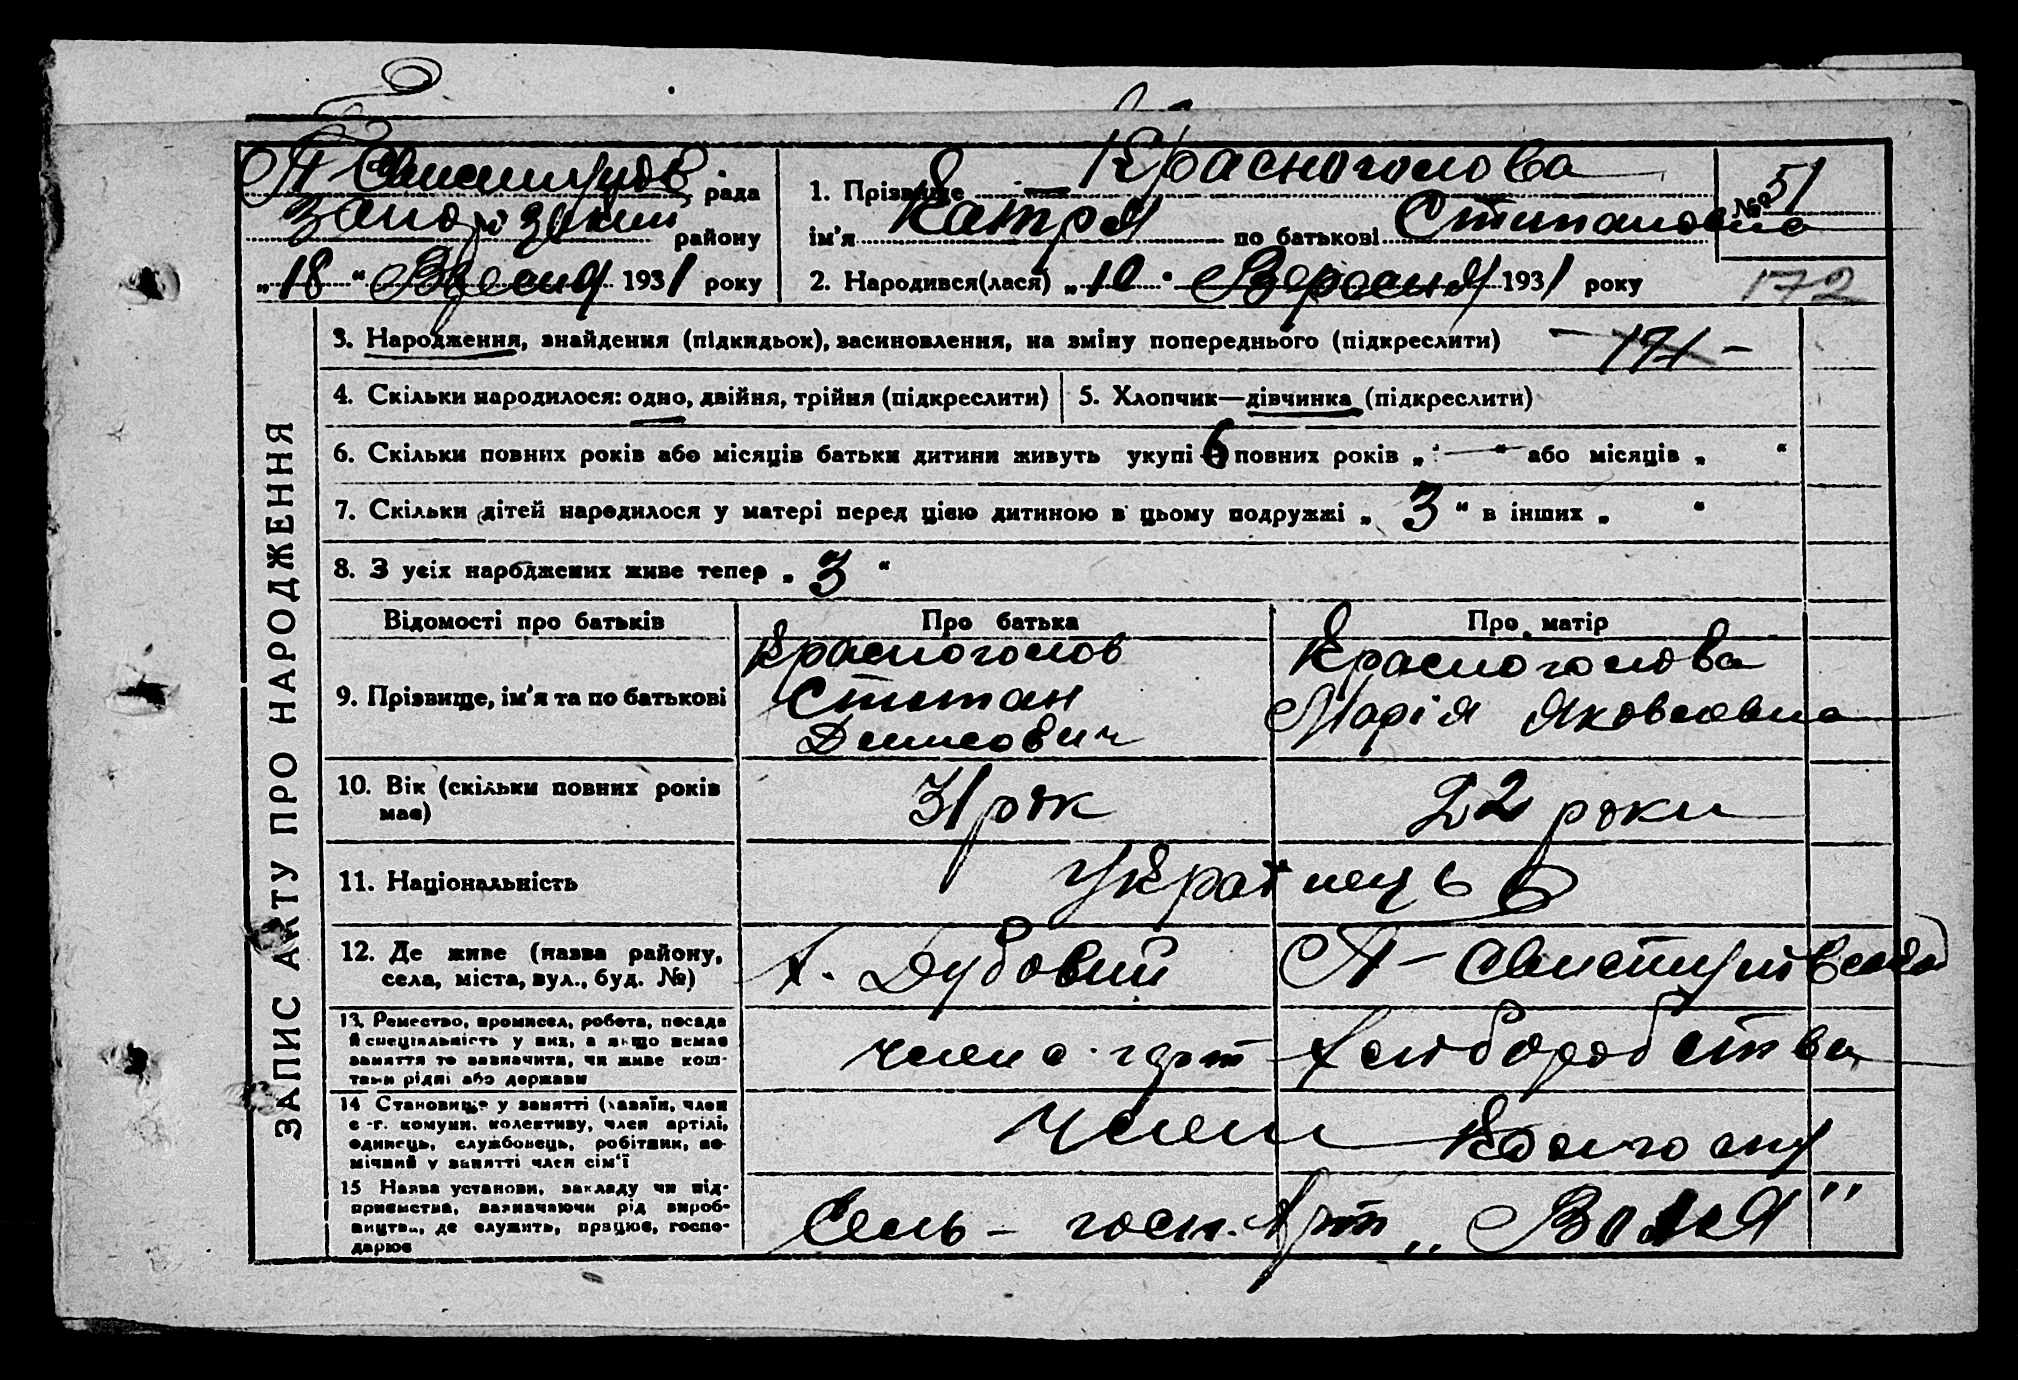 П Свистунов. рада
Запорізький району
„18“ Вересня 1931 року
1. Прізвище Красноголова
ім'я Катря по батькові Стипановна
№ 51
2. Народився(лася) „10“ Вересня 1931 року
172
3. Народження, знайдення (підкидьок), засиновлення, на зміну попереднього (підкреслити) – 171 –
4. Скільки народилося: одно, двійня, трійня (підкреслити)
5. Хлопчик—дівчинка (підкреслити)
6. Скільки повних років або місяців батьки дитини живуть укупі 6 повних років „—“ або місяців „ “
7. Скільки дітей народилося у матері перед цією дитиною в цьому подружжі „3“ в інших „ “
8. З усіх нарбджених живе тепер „3“
ЗАПИС АКТУ ПРО НАРОДЖЕННЯ
Відомості про батьків
Про батька
Про матір
9. Прізвище, ім'я та по батькові
Красноголов
Стипан
Денисович
Красноголова
Марія Яковлевна
10. Вік (скільки повних років
має)
31 рок
22 роки
11. Національність
Українець
12. Де живе (назва району,
села, міста, вул., буд. №)
х. Дубовий
П – Свистунівської
13. Ремество, промисел, робота, посада
й спеціяльність у них, а якщо немає
заняття то зазначити, чи живе кош-
тами рідні або держави
член с. г арт
Хліборобства
14 Становище у занятті (хазяїн, член
с.-г. комуни, колективу, член артілі,
одинець, службовець, робітник, по-
мічний у занятті член сім'ї
Член Колгоспу
15 Назва установи, закладу чи під-
приємства, зазначаючи рід вироб-
ництва, де служить, працює, госпо-
дарює
Сель – госп. Арт „Воля"